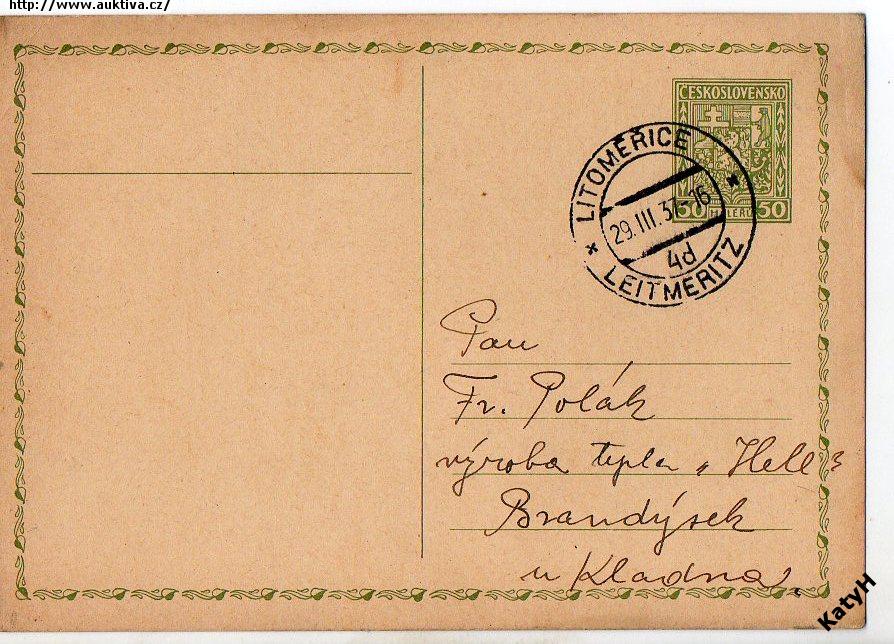 http://www.auktiva.cz/
ČESKOSLOVENSKO
50 HALÉŘŮ 50
LITOMĚŘICE
29.III.37-16
4d
LEITMERITZ
Pan
Fr. Polák
výroba tepla „Hell“
Brandýsek
u Kladna.
KatyH